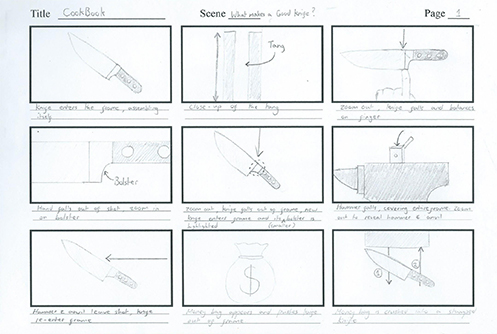 Title CookBook Scene What makes a Good Knife? Page 1
Tang
Knife enters the frame, assembling
Close-up of the tang
Zoom out, knife falls and balances
on finger
Bolster
Hand falls out of shot zoom in
on bolster
Zoom out, knife falls out of frame, new
knife enters frame and its bolster is
highlighted
Hammer falls, covering entire frame. Zoom
out to reveal hammer & anvil
Hammer & anvil leave shot, knife
re-enters frame
$
Money bag appears and pushes knife
out of frame
1
2
Money bag is crushed into a
knife